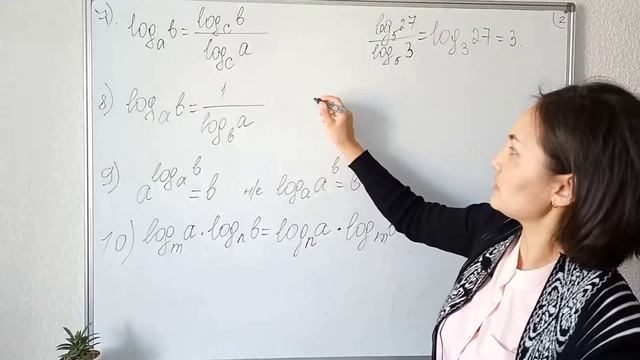 7). log_a b = log_c b / log_c a
log_5 27 / log_5 3 = log_3 27 = 3.
(2
8) log_a b = 1 / log_b a
9) a^(log_a b) = b н/е log_a a^b = b
10) log_m a · log_n b = log_n a · log_m b